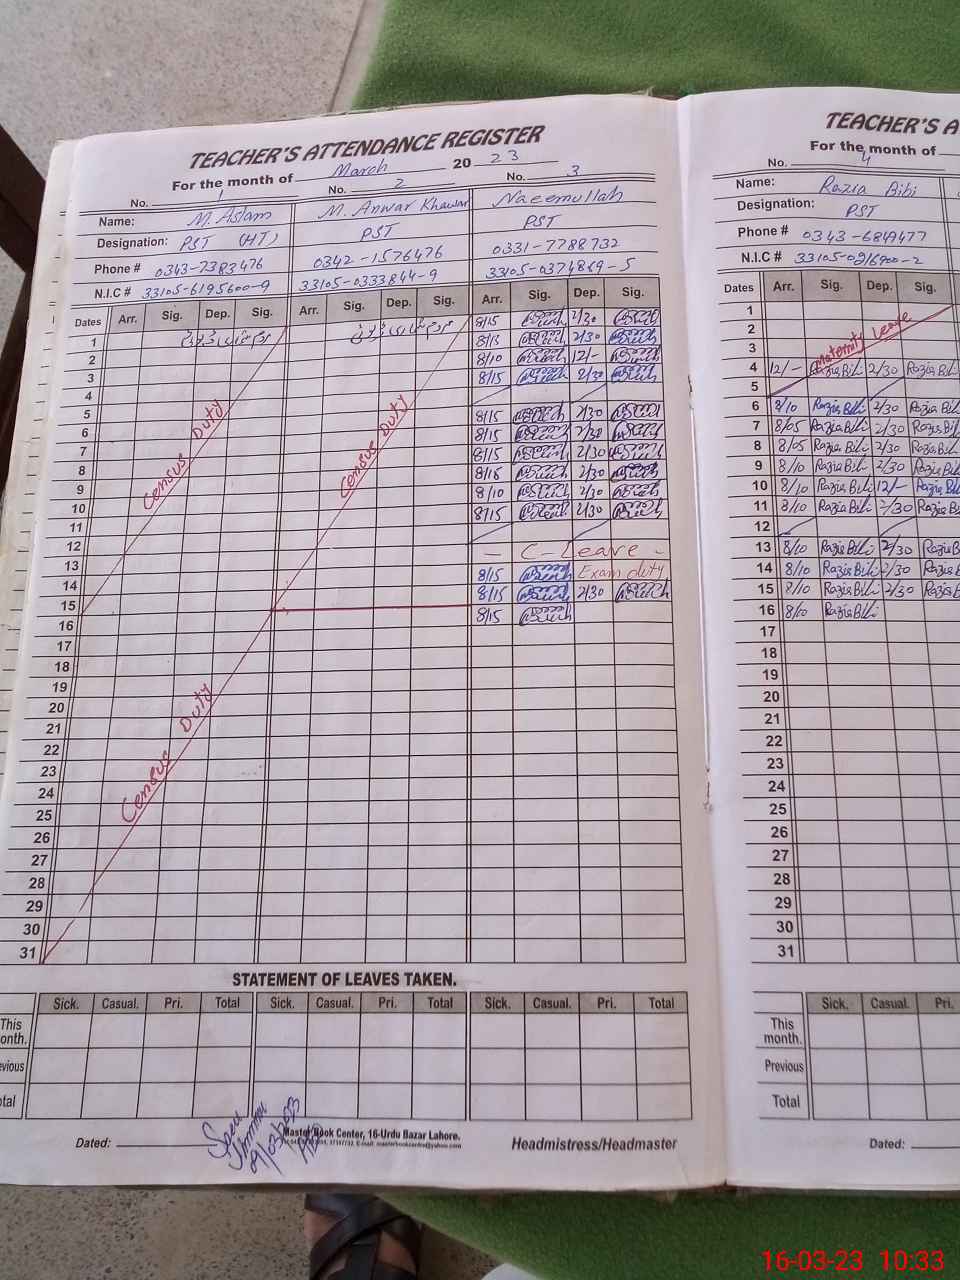 TEACHER'S ATTENDANCE REGISTER
For the month of March 2023
No. 1 No. 2 No. 3
Name: M. Aslam M. Anwar Khawar Naeemullah
Designation: PST (HT) PST PST
Phone # 0343-7383476 0342-1576476 0331-7788732
N.I.C # 33105-6195600-9 33105-0333844-9 33105-0374869-5
Dates Arr. Sig. Dep. Sig. Arr. Sig. Dep. Sig. Arr. Sig. Dep. Sig.
8/15 2/30
1 8/15 2/30
2 8/10 12/-
3 8/15 2/30
4
5 8/15 2/30
6 8/15 2/30
7 8/15 2/30
8 8/16 2/30
9 8/10 2/30
10 8/15 2/30
11
12 - C-Leave -
13 8/15 Exam duty
14 8/15 2/30
15 8/15
16
17
18
19
20
21
22
23
24
25
26
27
28
29
30
31
Census Duty
Census Duty
Census Duty
STATEMENT OF LEAVES TAKEN.
Sick. Casual. Pri. Total Sick. Casual. Pri. Total Sick. Casual. Pri. Total
This
onth.
evious
otal
Dated:
Master Book Center, 16-Urdu Bazar Lahore.
Headmistress/Headmaster
TEACHER'S A
For the month of
No. 4
Name: Razia Bibi
Designation: PST
Phone # 0343-6849477
N.I.C # 33105-0916900-2
Dates Arr. Sig. Dep. Sig.
1
2
3
Maternity Leave
4 12/- Razia Bibi 2/30 Razia Bibi
5
6 8/10 Razia Bibi 2/30 Razia B
7 8/05 Razia Bibi 2/30 Razia B
8 8/05 Razia Bibi 2/30 Razia B
9 8/10 Razia Bibi 2/30 Razia B
10 8/10 Razia Bibi 12/- Razia B
11 8/10 Razia Bibi 2/30 Razia B
12
13 8/10 Razia Bibi 2/30 Razia B
14 8/10 Razia Bibi 2/30 Razia B
15 8/10 Razia Bibi 2/30 Razia B
16 8/10 Razia Bibi
17
18
19
20
21
22
23
24
25
26
27
28
29
30
31
Sick. Casual. Pri.
This
month.
Previous
Total
Dated:
16-03-23 10:33